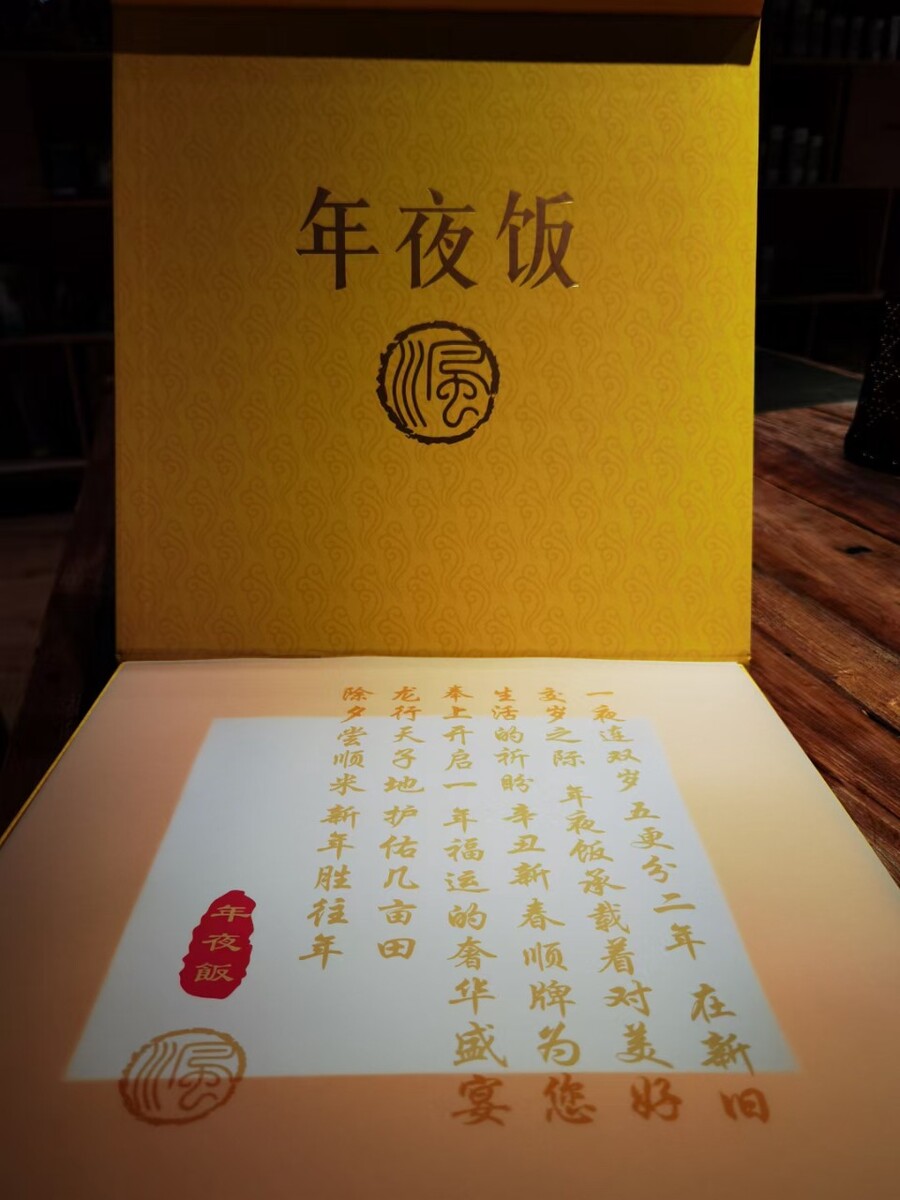 年夜饭
一夜连双岁 五更分二年 在新旧
交岁之际 年夜饭承载着对美好
生活的祈盼 辛丑新春顺牌为您
奉上开启一年福运的奢华盛宴
龙行天子地 护佑几亩田
除夕尝顺米 新年胜往年
年夜飯